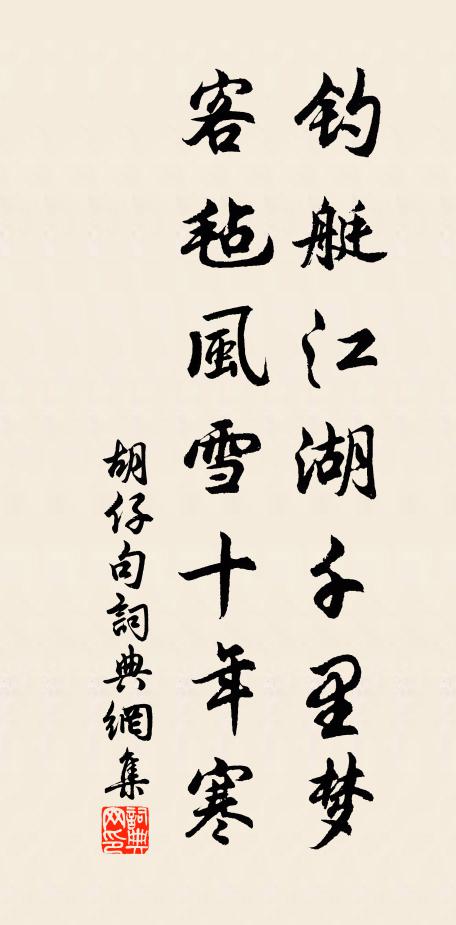 钓艇江湖千里梦
客毡風雪十年寒
胡仔句詞典網集
詞典网印